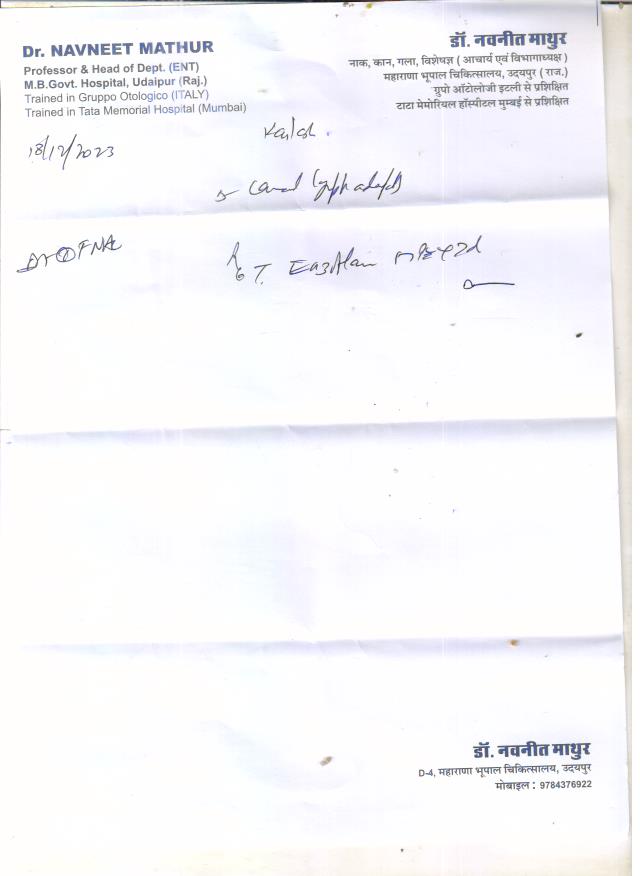 Dr. NAVNEET MATHUR
Professor & Head of Dept. (ENT)
M.B.Govt. Hospital, Udaipur (Raj.)
Trained in Gruppo Otologico (ITALY)
Trained in Tata Memorial Hospital (Mumbai)
डॉ. नवनीत माथुर
नाक, कान, गला, विशेषज्ञ ( आचार्य एवं विभागाध्यक्ष )
महाराणा भूपाल चिकित्सालय, उदयपुर ( राज.)
ग्रुपो ऑटोलोजी इटली से प्रशिक्षित
टाटा मेमोरियल हॉस्पीटल मुम्बई से प्रशिक्षित
18/12/2023
FNAC
T.
डॉ. नवनीत माथुर
D-4, महाराणा भूपाल चिकित्सालय, उदयपुर
मोबाइल : 9784376922